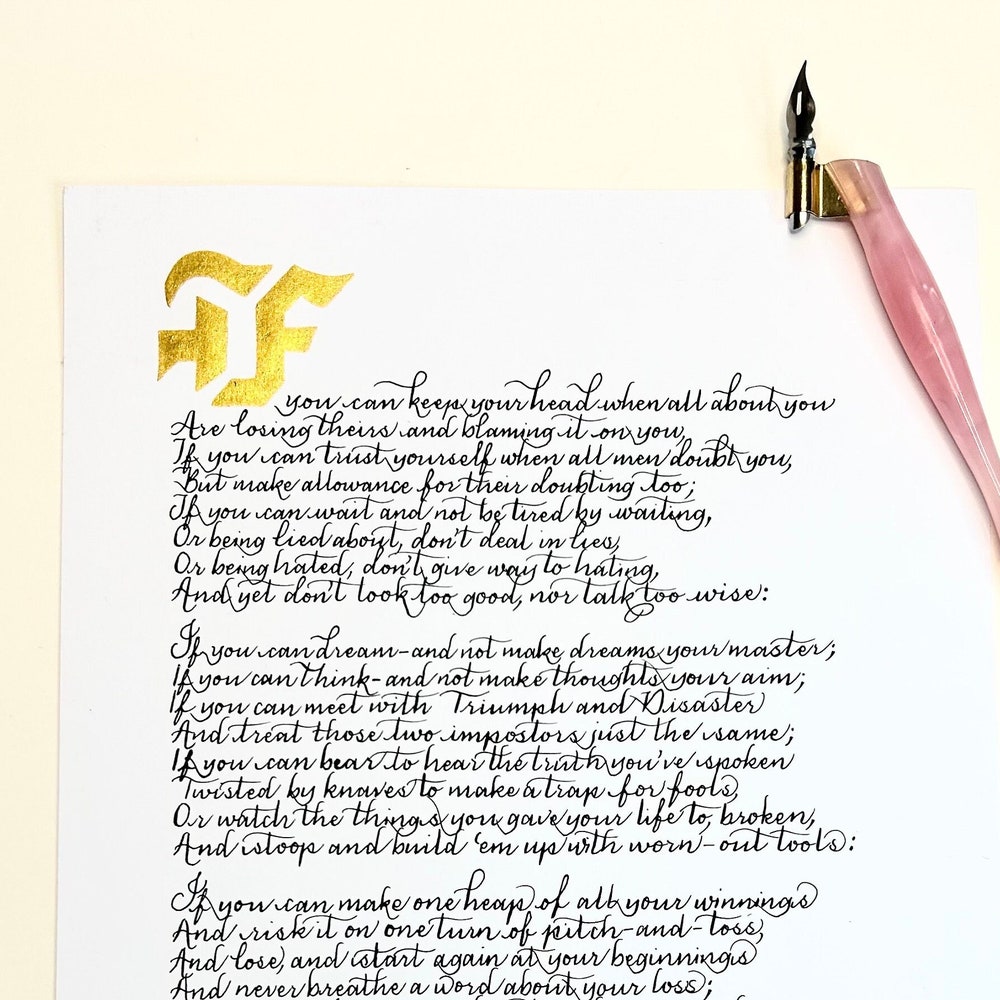 If
you can keep your head when all about you
Are losing theirs and blaming it on you,
If you can trust yourself when all men doubt you,
But make allowance for their doubting too;
If you can wait and not be tired by waiting,
Or being lied about, don't deal in lies,
Or being hated, don't give way to hating,
And yet don't look too good, nor talk too wise:
If you can dream-and not make dreams your master;
If you can think-and not make thoughts your aim;
If you can meet with Triumph and Disaster
And treat those two impostors just the same;
If you can bear to hear the truth you've spoken
Twisted by knaves to make a trap for fools,
Or watch the things you gave your life to, broken,
And stoop and build 'em up with worn-out tools:
If you can make one heap of all your winnings
And risk it on one turn of pitch-and-toss,
And lose, and start again at your beginnings
And never breathe a word about your loss;